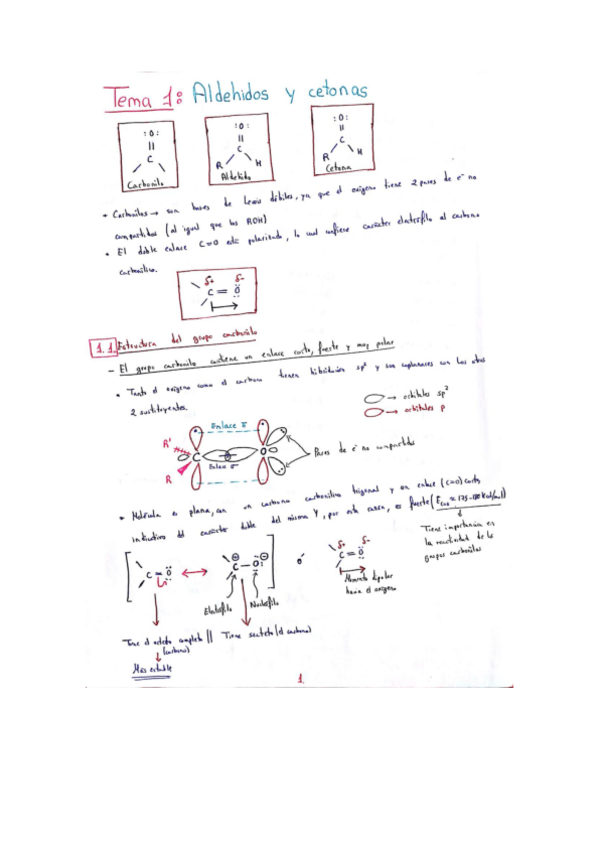 Tema 1: Aldehidos y cetonas
:O:
||
C
Carbonilo
:O:
||
C
R H
Aldehido
:O:
||
C
R H
Cetona
• Carbonilos → son bases de Lewis débiles, ya que el oxígeno tiene 2 pares de e⁻ no
compartidos (al igual que los ROH)
• El doble enlace C=O está polarizado, lo cual confiere carácter electrófilo al carbono
carbonílico.
δ+ δ-
C = O
1.1. Estructura del grupo carbonilo
- El grupo carbonilo contiene un enlace corto, fuerte y muy polar
• Tanto el oxígeno como el carbono tienen hibridación sp² y son coplanares con los otros
2 sustituyentes.
→ orbitales sp²
→ orbitales p
Enlace π
R'
C
O
Enlace σ
R
Pares de e⁻ no compartidos
• Molécula es plana, con un carbono carbonílico trigonal y un enlace (C=O) corto
indicativo del carácter doble del mismo y, por esta razón, es fuerte (E ≈ 175-180 Kcal/mol)
Tiene importancia en
la reactividad de los
grupos carbonilos
C = O
↔
C - O
ó
δ+ δ-
C = O
Electrófilo
Nucleófilo
Momento dipolar
hacia el oxígeno
Tiene el octeto completo || Tiene sexteto (el carbono)
(carbono)
Más estable
1.